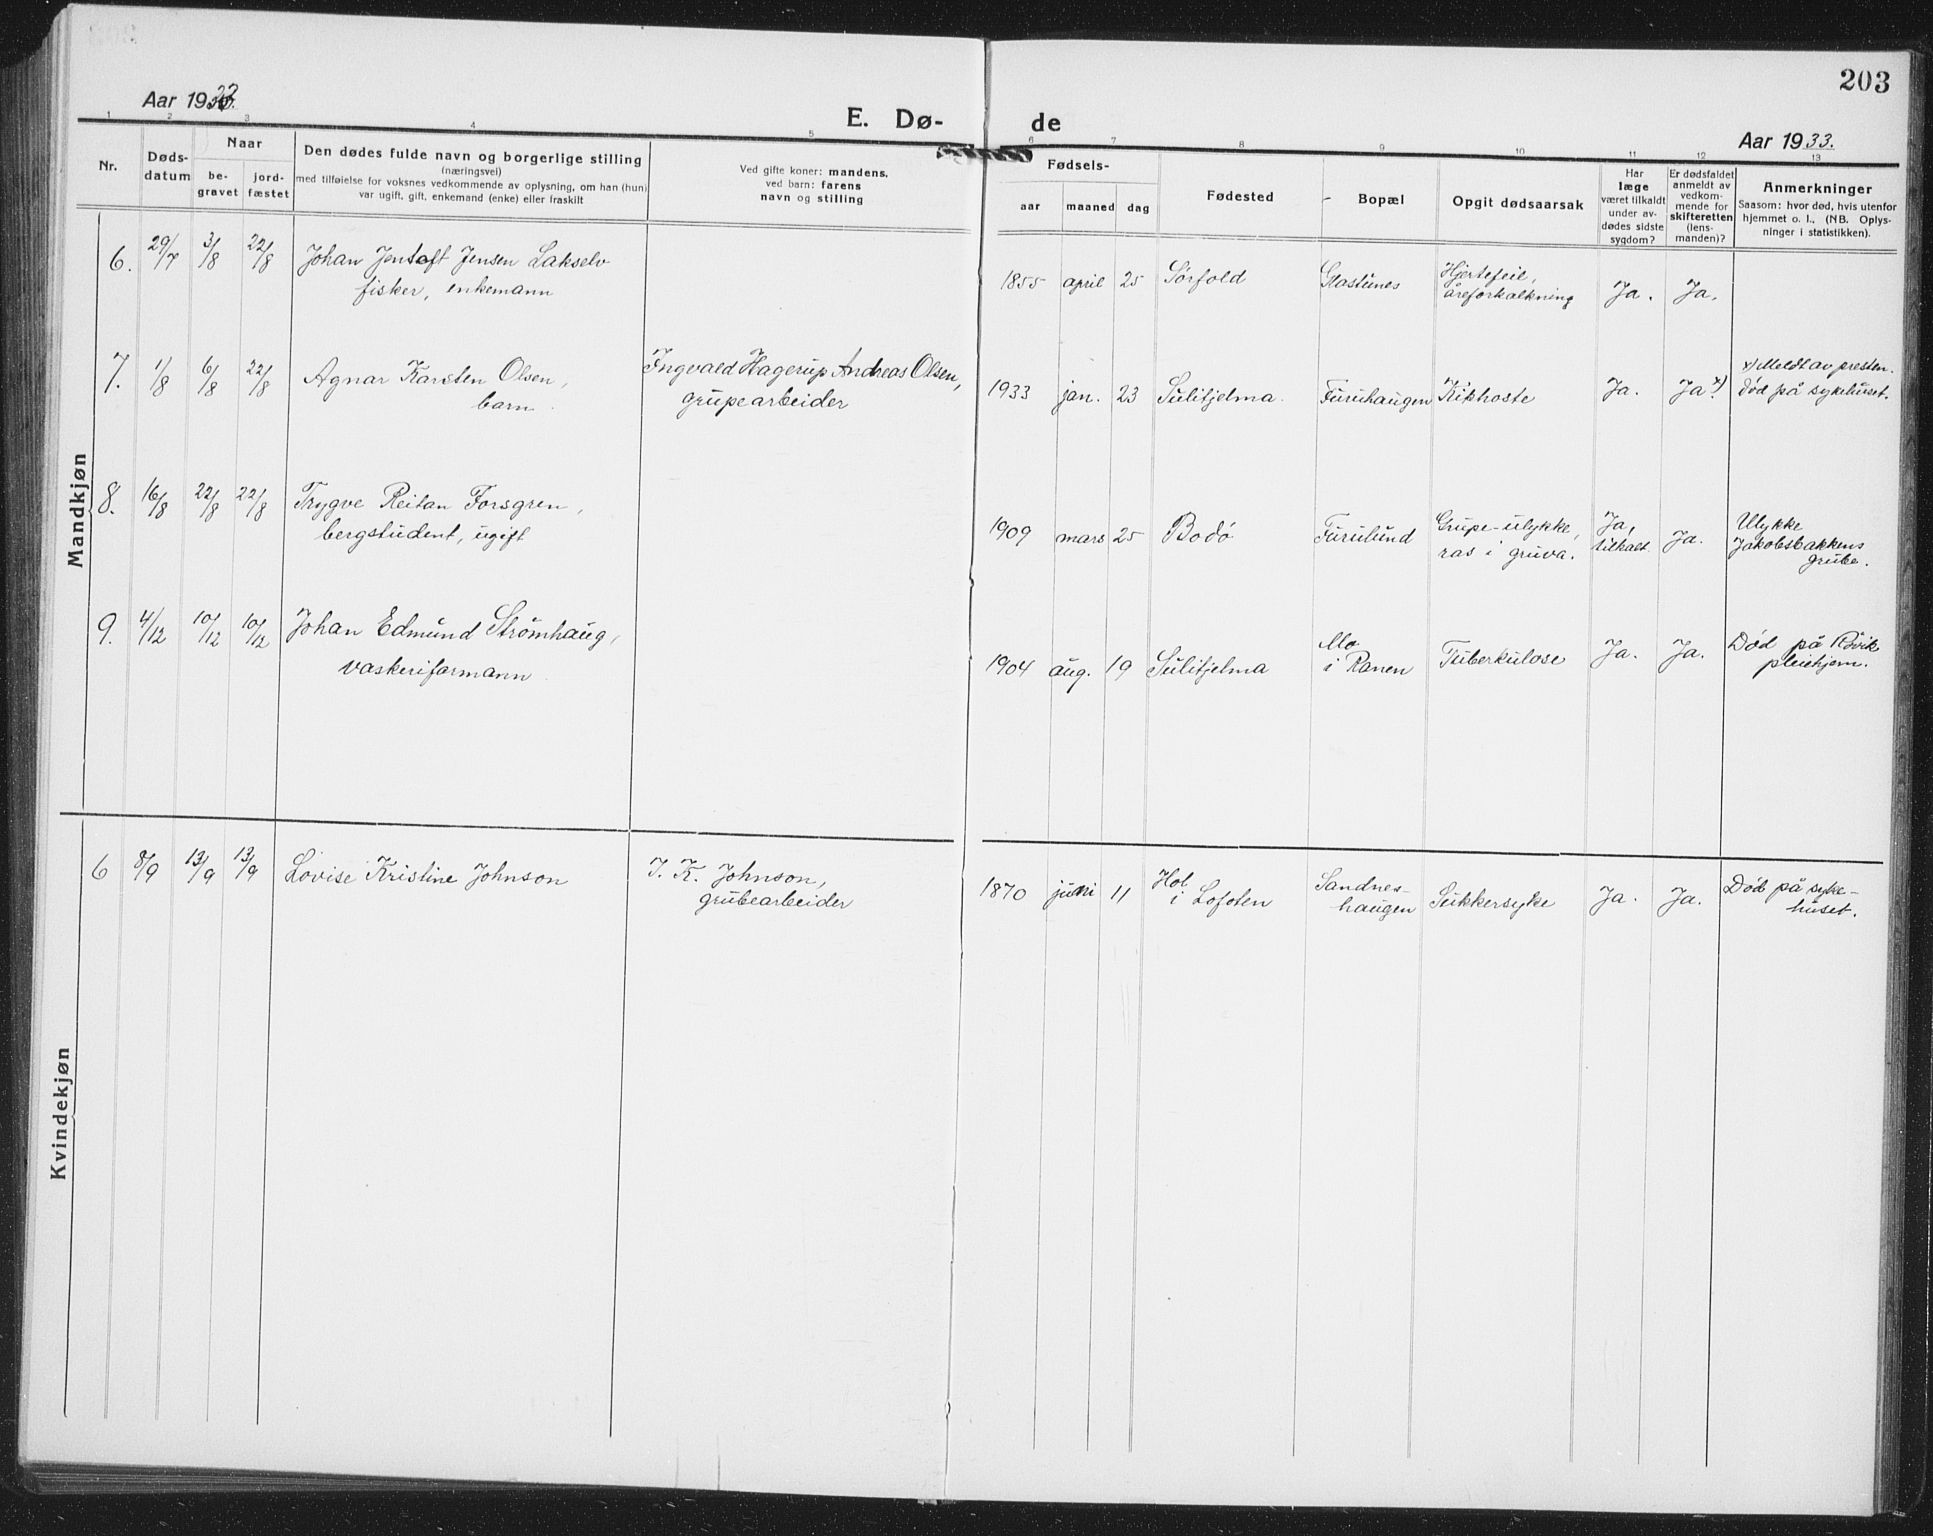 203
Aar 1933.
E. Dø-
de
Aar 1933.
1 2 3 4 5 6 7 8 9 10 11 12 13
Nr.
Døds-
datum
Naar
be-
gravet
jord-
fæstet
Den dødes fulde navn og borgerlige stilling
(næringsvei)
med tilføielse for voksnes vedkommende av oplysning, om han (hun)
var ugift, gift, enkemand (enke) eller fraskilt
Ved gifte koner: mandens,
ved barn: farens
navn og stilling
Fødsels-
aar
maaned
dag
Fødested
Bopæl
Opgit dødsaarsak
Har
læge
været tilkaldt
under av-
dødes sidste
sygdom?
Er dødsfaldet
anmeldt av
vedkom-
mende for
skifteretten
(lens-
manden)?
Anmerkninger
Saasom: hvor død, hvis utenfor
hjemmet o. l., (NB. Oplys-
ninger i statistikken).
Mandkjøn
6. 29/7 3/8 22/8 Johan Jentoft Jensen Lakselv
fisker, enkemann
1855 april 25 Sørfold
Hjertefeil,
åreforkalkning
Ja. Ja.
7. 1/8 6/8 22/8 Agnar Karsten Olsen,
barn.
Ingvald Hagerup Andreas Olsen,
grupearbeider
1933 jan. 23 Sulitjelma. Furuhaugen Kikhoste Ja. Ja. x)
x) Meldt av presten.
død på sykehuset.
8. 16/8 22/8 22/8 Trygve Reitan Forsgren,
bergstudent, ugift
1909 mars 25 Bodø Furulund
Grupe-ulykke,
ras i gruva.
Ja,
tilkalt.
Ja.
Ulykke
Jakobsbakkens
grube.
9. 4/12 10/12 10/12 Johan Edmund Strømhaug,
vaskeriformann
1904 aug. 19 Sulitjelma
Mo
i Ranen
Tuberkulose Ja. Ja.
Død på Røvik
pleiehjem.
Kvindekjøn
6 8/9 13/9 13/9 Lovise Kristine Johnson
J. K. Johnson,
grubearbeider
1870 juni 11
Hol
i Lofoten
Sandnes-
haugen
Sukkersyke Ja. Ja.
Død på syke-
huset.